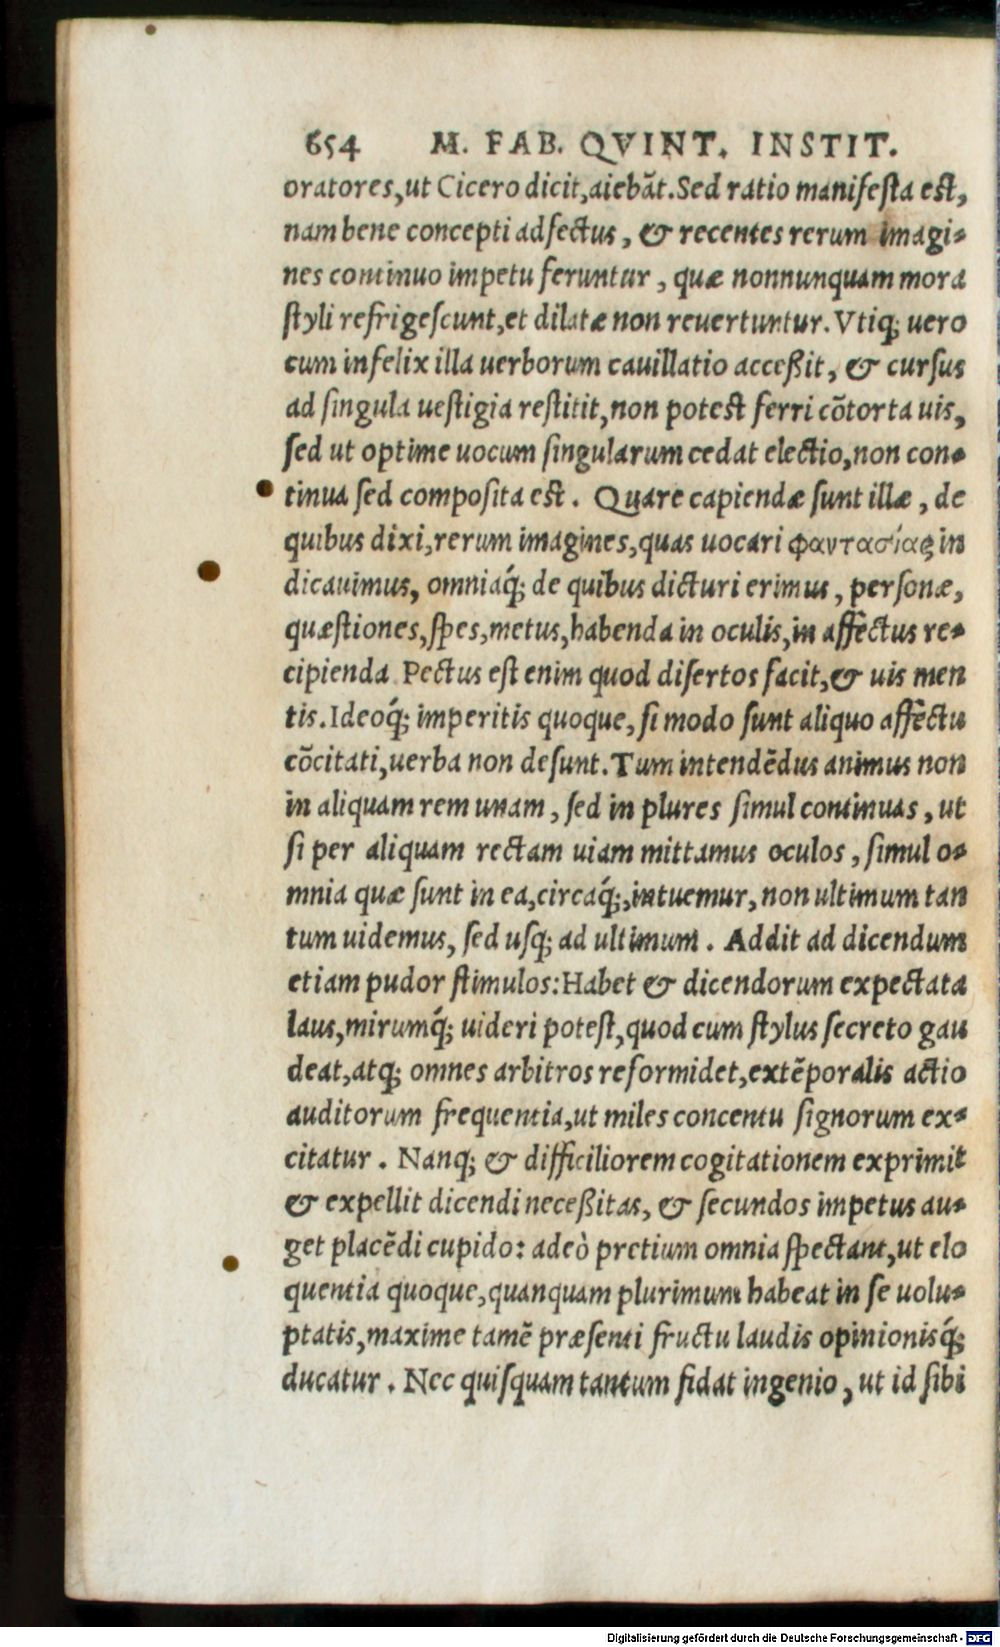 654 M. FAB. QVINT. INSTIT.
oratores,ut Cicero dicit,aiebãt.Sed ratio manifesta est,
nam bene concepti adfectus, & recentes rerum imagi-
nes continuo impetu feruntur, quæ nonnunquam mora
styli refrigescunt,et dilatæ non reuertuntur.Vtiq; uero
cum infelix illa uerborum cauillatio acceßit, & cursus
ad singula uestigia restitit,non potest ferri cõtorta uis,
sed ut optime uocum singularum cedat electio,non con-
tinua sed composita est. Quare capiendæ sunt illæ, de
quibus dixi,rerum imagines,quas uocari φαντασίας in
dicauimus, omniaq́; de quibus dicturi erimus, personæ,
quæstiones,spes,metus,habenda in oculis,in affectus re-
cipienda Pectus est enim quod disertos facit,& uis men
tis.Ideoq́; imperitis quoque,si modo sunt aliquo affectu
cõcitati,uerba non desunt.Tum intendẽdus animus non
in aliquam rem unam, sed in plures simul continuas, ut
si per aliquam rectam uiam mittamus oculos, simul o-
mnia quæ sunt in ea,circaq́;,intuemur,non ultimum tan
tum uidemus, sed usq; ad ultimum. Addit ad dicendum
etiam pudor stimulos:Habet & dicendorum expectata
laus,mirumq́; uideri potest,quod cum stylus secreto gau
deat,atq; omnes arbitros reformidet,extẽporalis actio
auditorum frequentia,ut miles concentu signorum ex-
citatur. Nanq; & difficiliorem cogitationem exprimit
& expellit dicendi neceßitas, & secundos impetus au-
get placẽdi cupido: adeò pretium omnia spectant,ut elo
quentia quoque,quanquam plurimum habeat in se uolu-
ptatis,maxime tamẽ præsenti fructu laudis opinionisq́;
ducatur. Nec quisquam tantum fidat ingenio, ut id sibi
Digitalisierung gefördert durch die Deutsche Forschungsgemeinschaft - DFG